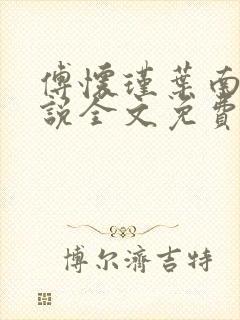 傅懷瑾葉南
說全文免費
博尔濟吉特